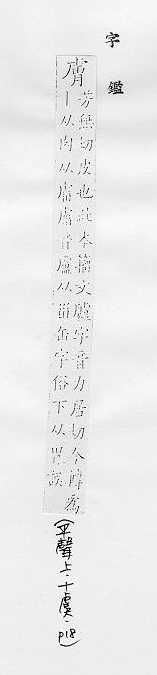 字鑑
膚
芳無切皮也此本籀文臚字音力居切今轉爲
｜从肉从𧆨𧆨音盧从甾缶字俗下从誤
(平聲上·十虞·p18)